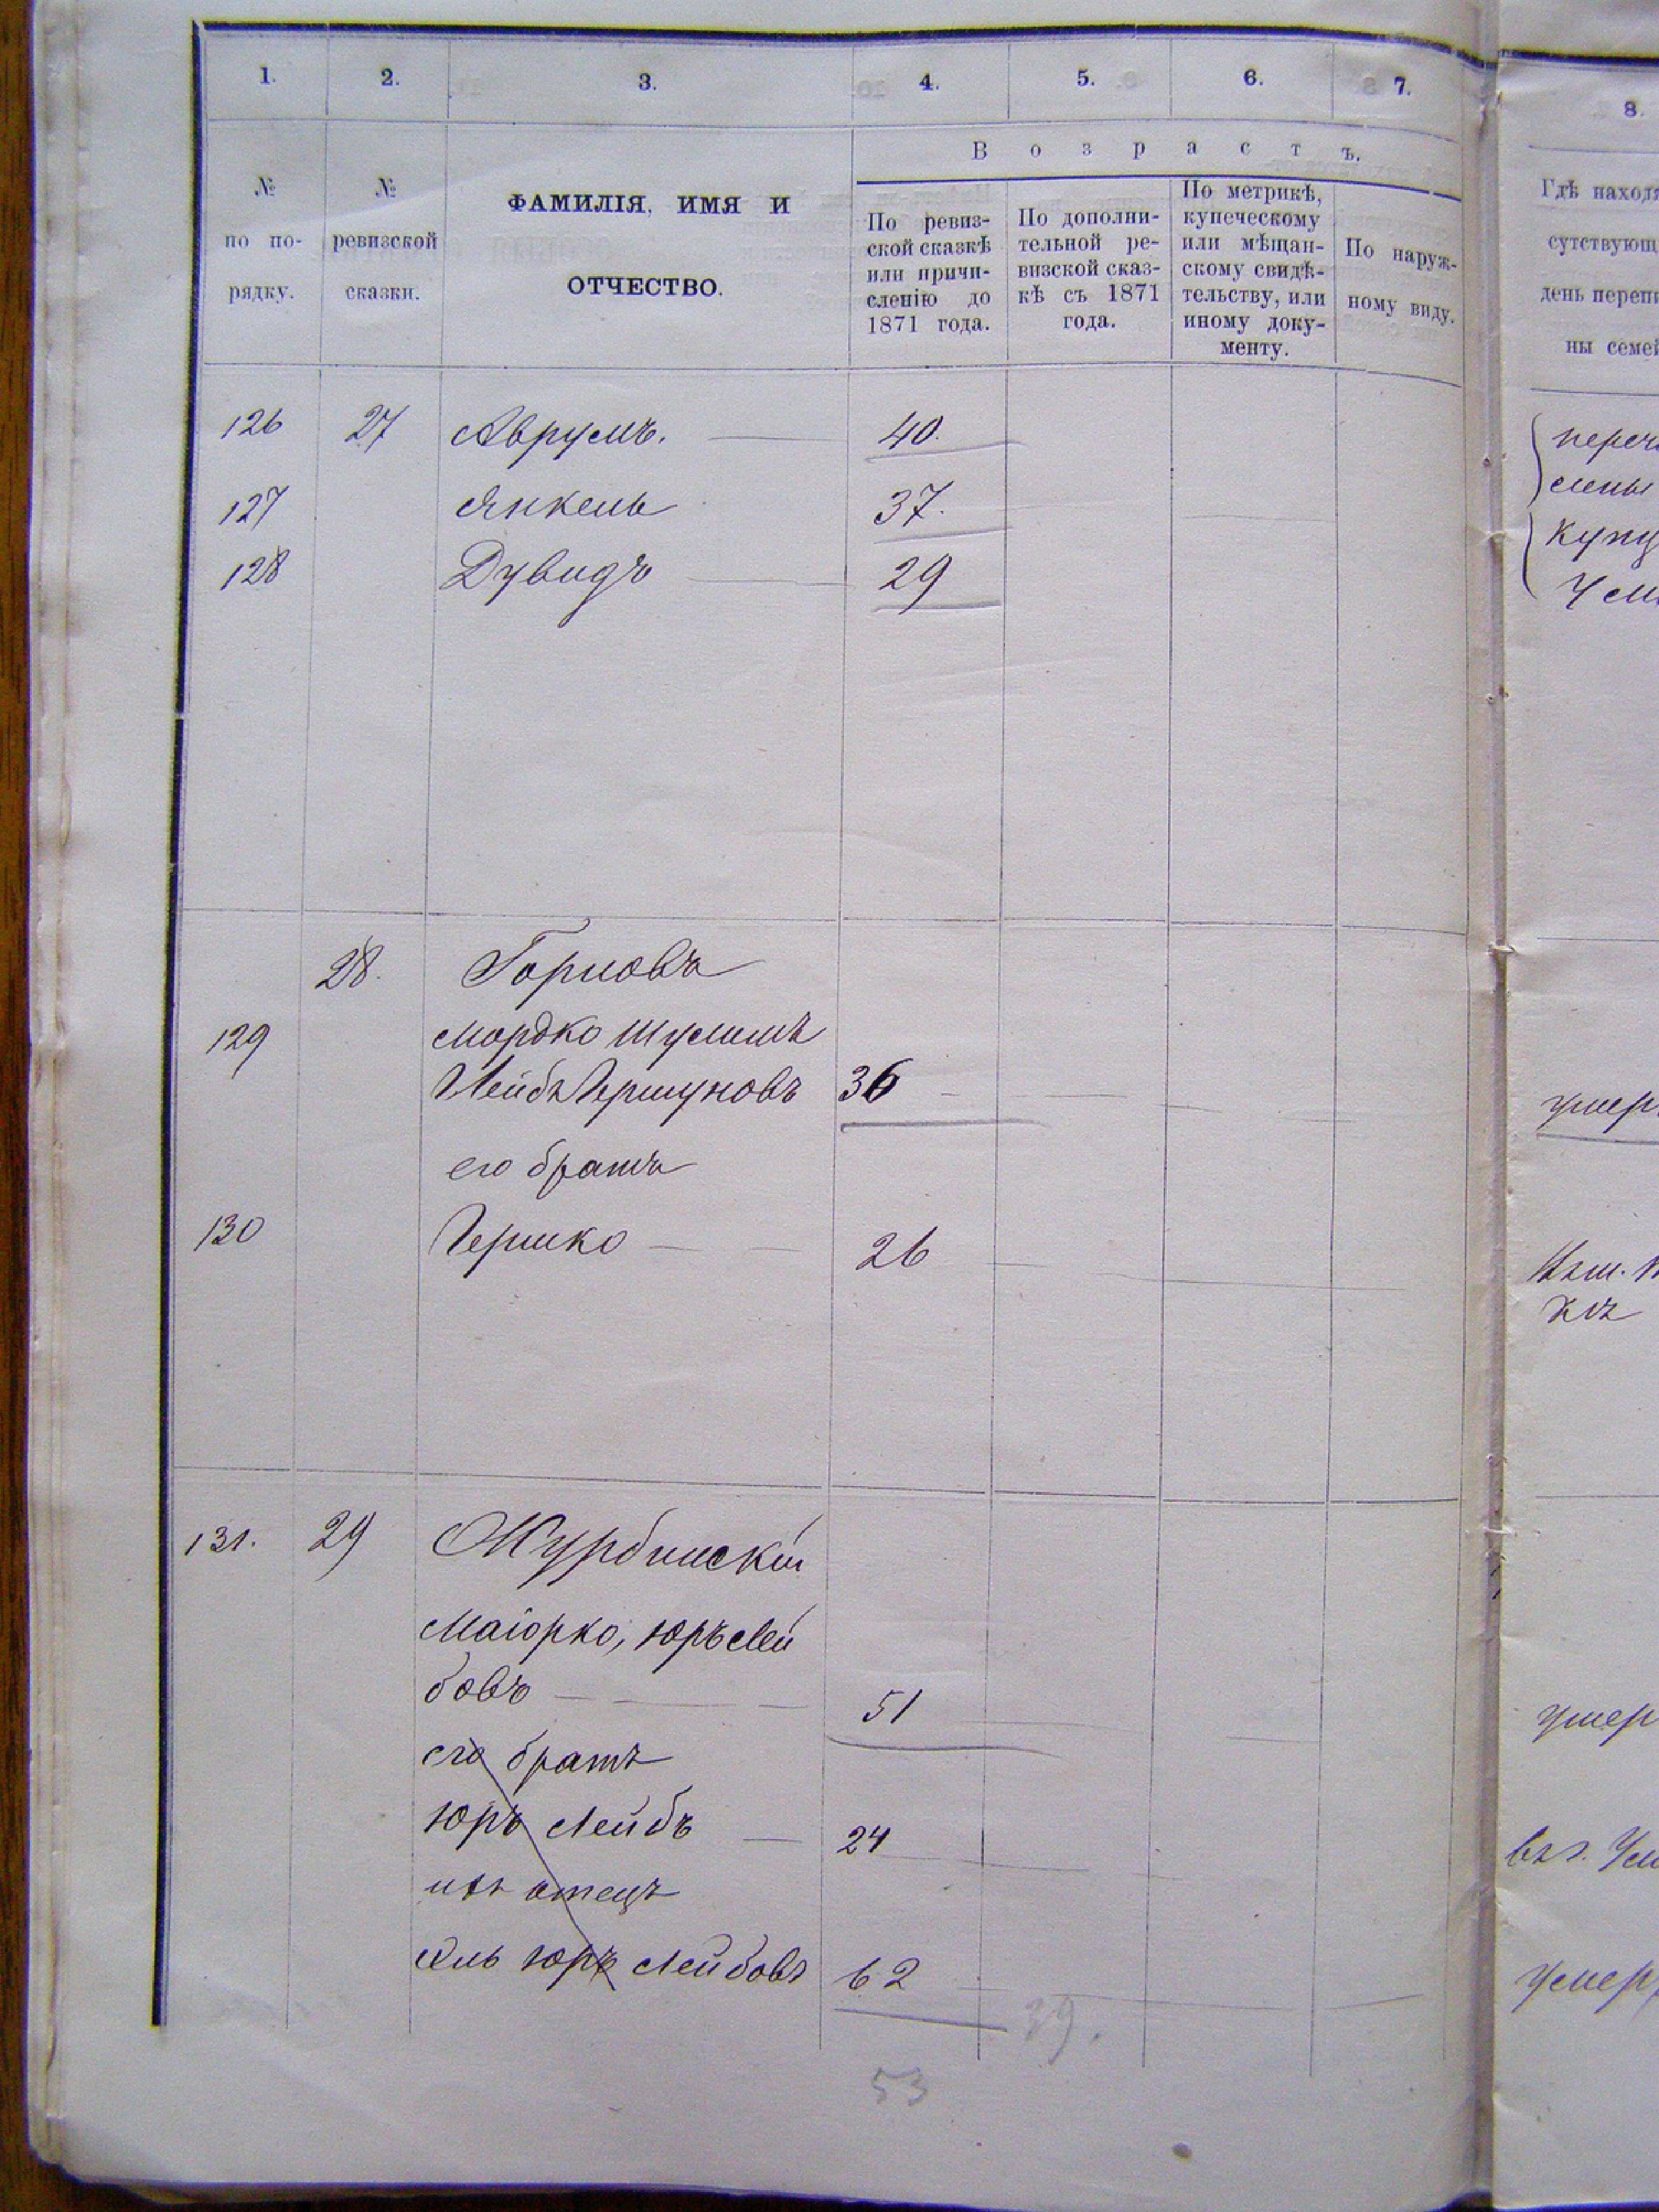 1. 2. 3. 4. 5. 6. 7.
8.
В о з р а с т ъ.
№ по по-рядку.
№ ревизской сказки.
ФАМИЛІЯ, ИМЯ И
ОТЧЕСТВО.
По ревиз-
ской сказкѣ
или причи-
сленію до
1871 года.
По дополни-
тельной ре-
визской сказ-
кѣ съ 1871
года.
По метрикѣ,
купеческому
или мѣщан-
скому свидѣ-
тельству, или
иному доку-
менту.
По наруж-
ному виду.
Гдѣ наход
сутствующ
день переп
ны семе
126 27 Аврумъ. 40.
127 Янкель 37.
128 Дувидъ 29
28. Горновъ
129 Мордко Шулимъ
Лейбъ Гершуновъ 36
его братъ
130 Гершко 26
131. 29 Журбинскій
Маіорко, Юръ Лей
бовъ 51
его братъ
Юръ Лейбъ 24
ихъ отецъ
Эль Юръ Лейбовъ 62
39.
53
умер
умер
умер